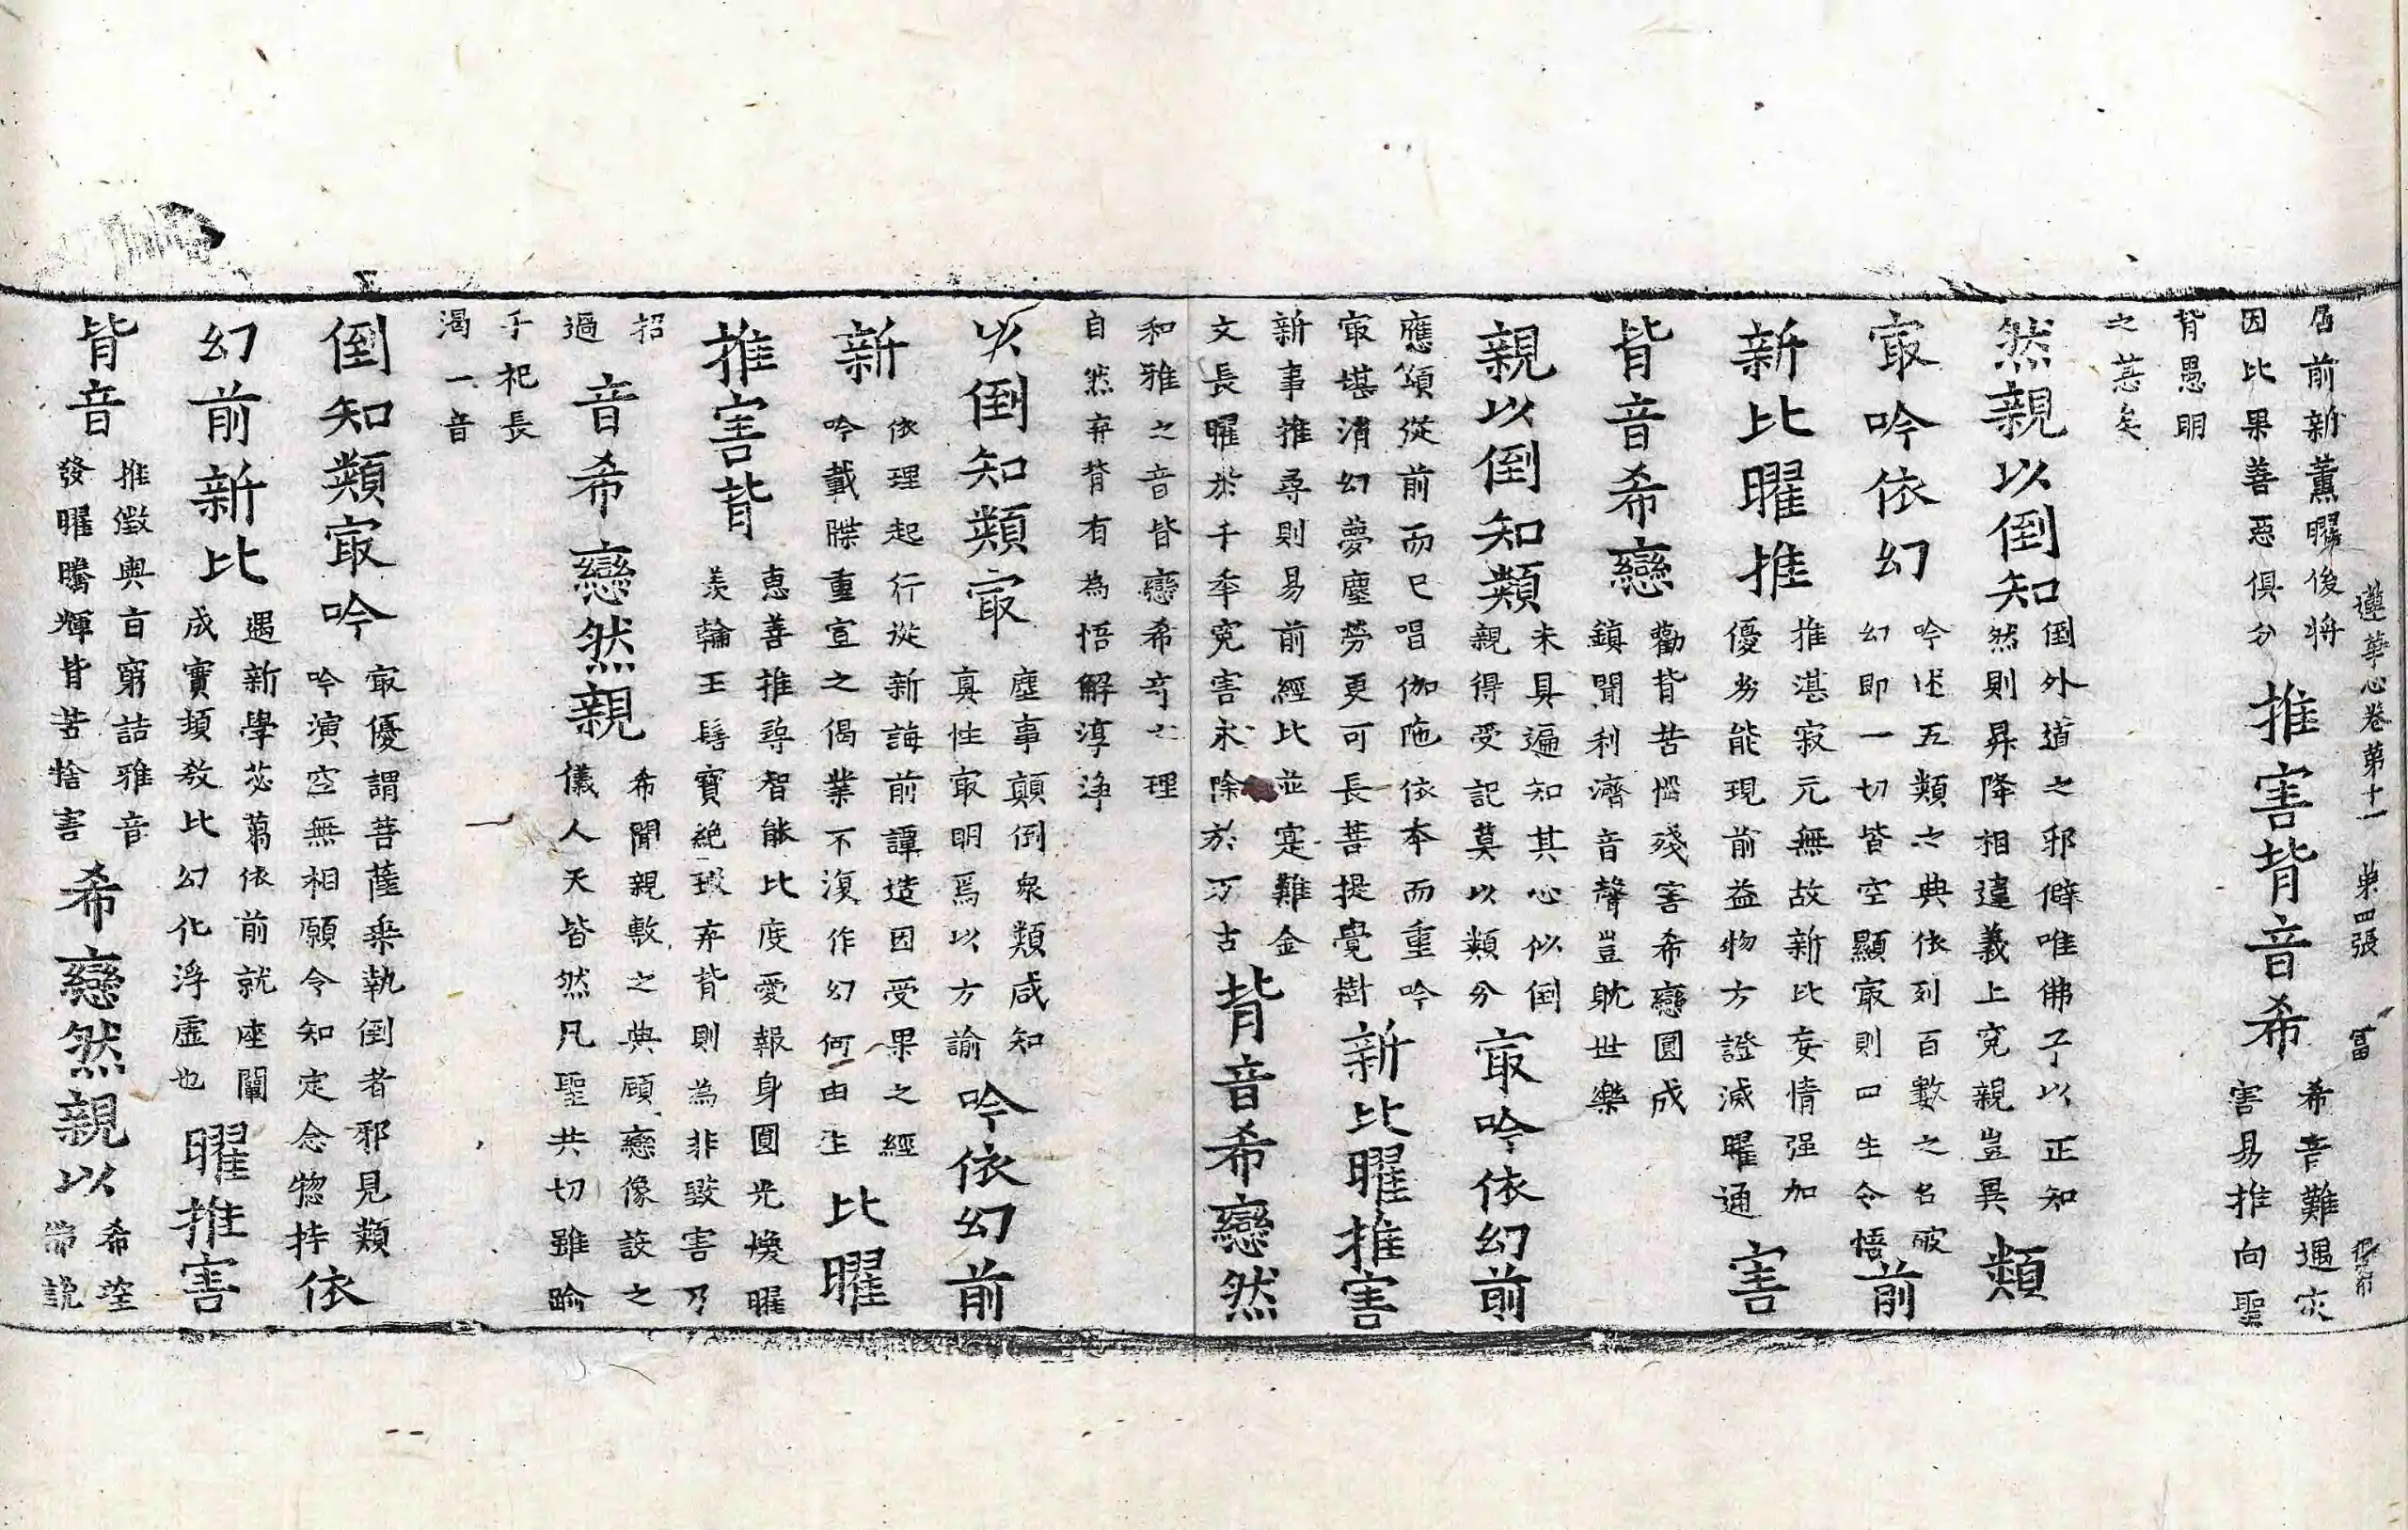 蓮華心卷第十一 第四張 富
居前新薰曜後将
因比果善惡俱分
推害背音希
希音難遇灾
害易推向聖
背愚明
之 矣
然親以倒知
倒外道之邪僻唯佛子以正知
然則昇降相違義上究親豈異
類
㝡吟依幻
吟述五類之典依列百數之名破
幻即一切皆空顯㝡則四生令悟
前
新比曜推
推湛寂元無故新比妄情强加
優劣能現前益物方證滅曜通
害
背音希戀
勸背苦惱殘害希戀圓成
鎮聞利濟音聲豈躭世樂
親以倒知類
未具遍知其心似倒
親得受記莫以類分
㝡吟依幻前
應頌從前而已唱伽陁依本而重吟
㝡堪消幻夢塵勞更可長菩提覺樹
新比曜推害
新事推尋則易前經比並寔難金
文長曜於千年冤害永除於万古
背音希戀然
和雅之音皆戀希奇之理
自然弃背有為悟解淳净
以倒知類㝡
塵事顛倒衆類咸知
真性㝡明焉以方諭
吟依幻前
新
依理起行從新誨前譚造因受果之經
吟載牒重宣之偈業不復作幻何由生
比曜
推害背
惠善推尋智能比度愛報身圓光煥曜
羡輪王髻寶絶瑕弃背則為非致害乃
招
過
音希戀然親
希聞親敷之典顧戀像設之
儀人天皆然凡聖共切雖踰
千祀長
渴一音
倒知類㝡吟
㝡優謂菩薩乘執倒者邪見類
吟演空無相願令知定念惣持
依
幻前新比
遇新學苾蒭依前就座闡
成實頓教比幻化浮虛也
曜推害
背音
推徵奥旨窮詰雅音
發曜騰輝背苦捨害
希戀然親以
希
常說